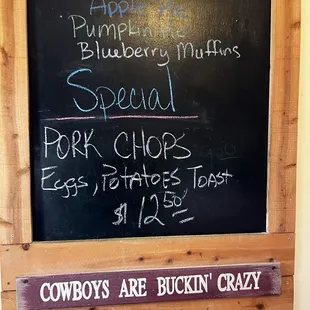 Apple Pie
Pumpkin Pie
Blueberry Muffins
Special
PORK CHOPS
Eggs, POTATOES TOAST
$12.50
COWBOYS ARE BUCKIN' CRAZY